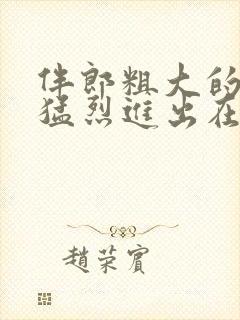 伴郎粗大的
猛烈進出在
趙荣賓